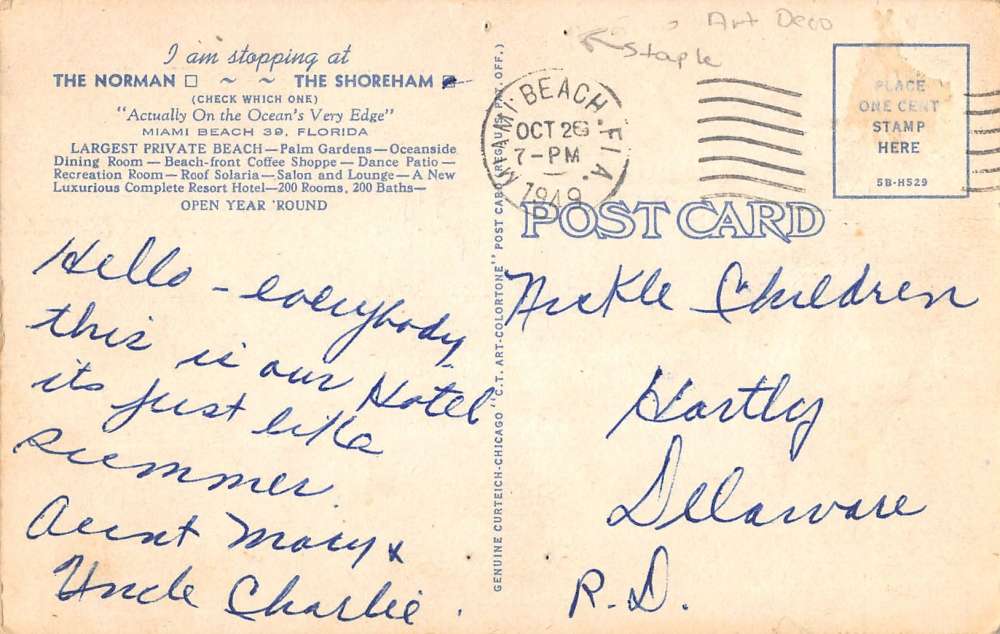 I am stopping at
THE NORMAN □ ~ ~ THE SHOREHAM □
(CHECK WHICH ONE)
"Actually On the Ocean's Very Edge"
MIAMI BEACH 39, FLORIDA
LARGEST PRIVATE BEACH—Palm Gardens—Oceanside
Dining Room—Beach-front Coffee Shoppe—Dance Patio—
Recreation Room—Roof Solaria—Salon and Lounge—A New
Luxurious Complete Resort Hotel—200 Rooms, 200 Baths—
OPEN YEAR 'ROUND
Hello - everybody,
this is our Hotel
its just like
summer
Aunt Mary &
Uncle Charlie.
GENUINE CURTEICH-CHICAGO "C.T. ART-COLORTONE" POST CARD (REG. U.S. PAT. OFF.)
Art Deco
Staple
MIAMI BEACH, FLA.
OCT 26
7-PM
1949
PLACE
ONE CENT
STAMP
HERE
5B-H529
POST CARD
Nickle Children
Hartly
Delaware
R.D.